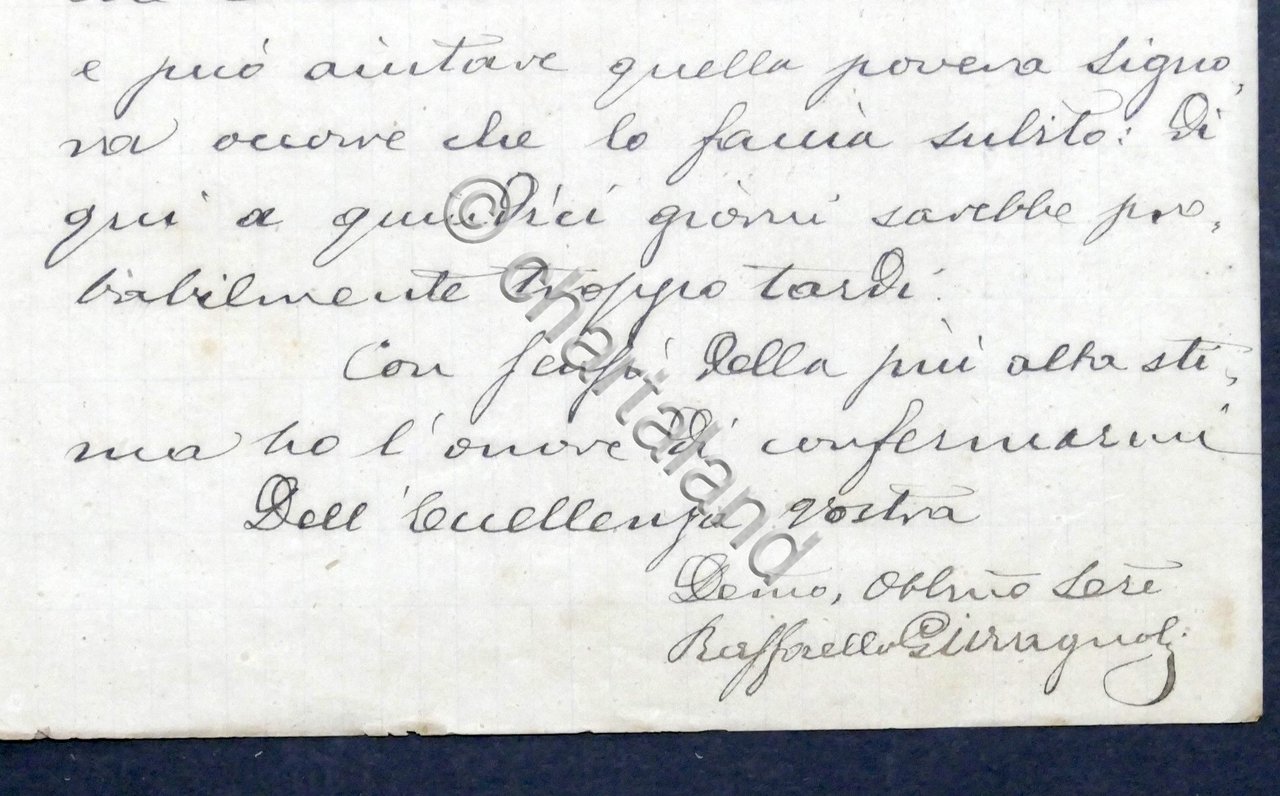 e può aiutare quella povera signo,
ra occorre che lo faccia subito: di
qui a quindici giorni sarebbe pro,
babilmente troppo tardi.
Con sensi della più alta sti,
ma ho l'onore di confermarmi
Dell'Eccellenza Vostra
Devmo, Obblmo
Raffaello Giovagnoli
© chartaland